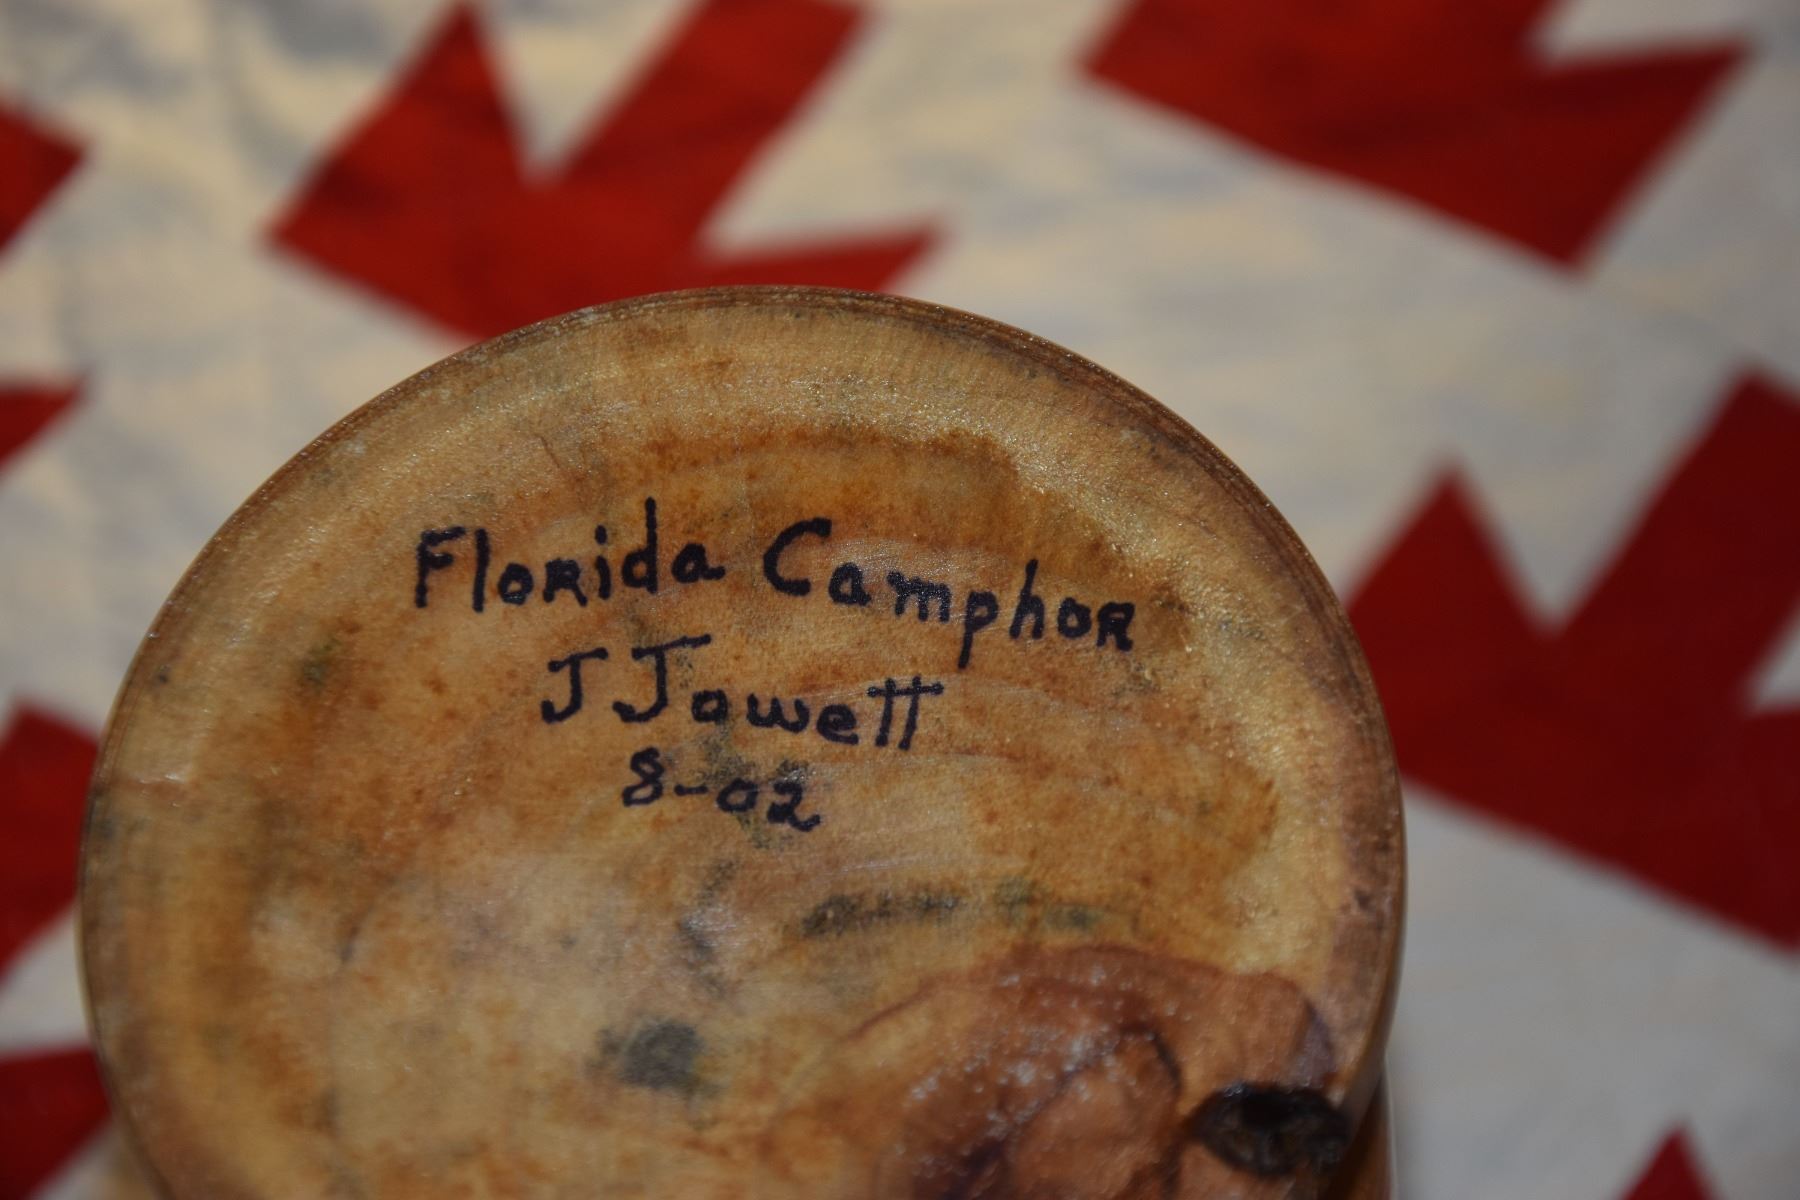 Florida Camphor
J Jowett
8-02